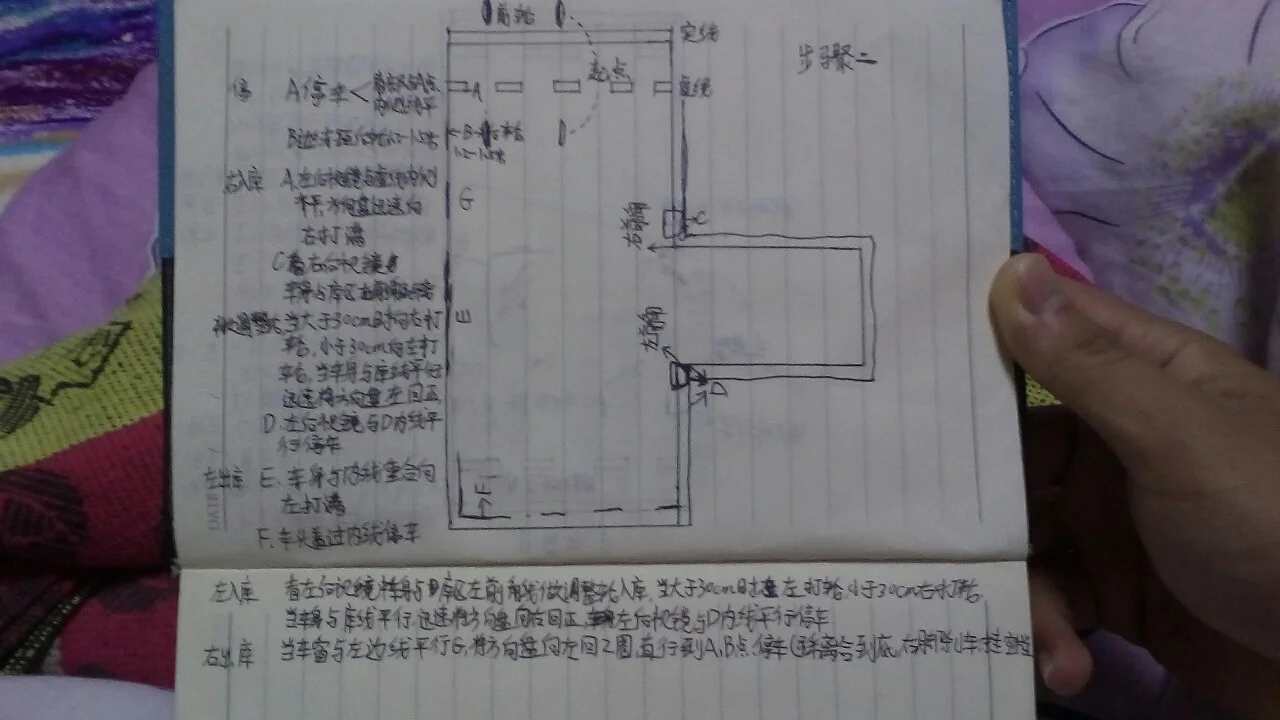 前轮
实线
步骤二
起点
停 A停车<
A
虚线
B
1.2-1.5米
右入库 A.左后视镜与虚线内侧
平,方向盘迅速向
右打满
G
右前角
C
C看右后视镜
车身与库区右前角
当大于30cm时向右打
轮,小于30cm向左打
轮,当车身与库线平行
迅速将方向盘左回正
E
左前角
D
D.左后视镜与D内线平
行停车
左出库 E.车身与内线重合向
左打满
F
F.车头盖过内线停车
左入库 看左后视镜车身与库区左前角线做调整轮入库,当大于30cm时左打轮,小于30cm右打轮,
当车身与库线平行,迅速将方向盘向右回正,左后视镜与D内线平行停车
右出库 当车窗与左边线平行G,将方向盘向左回2圈,直行到A,B点停车(踩离合到底,右脚踩刹车,挂空挡